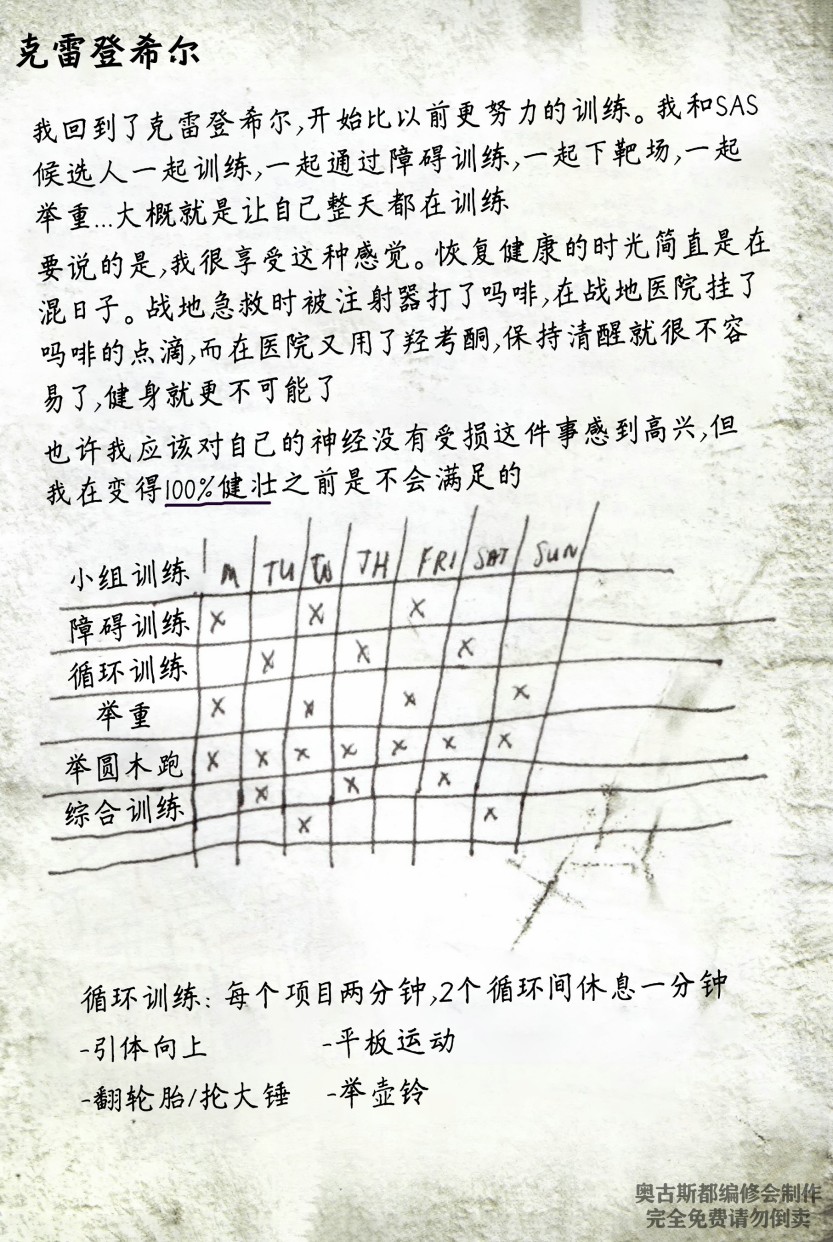 克雷登希尔
我回到了克雷登希尔,开始比以前更努力的训练。我和SAS
候选人一起训练,一起通过障碍训练,一起下靶场,一起
举重...大概就是让自己整天都在训练
要说的是,我很享受这种感觉。恢复健康的时光简直是在
混日子。战地急救时被注射器打了吗啡,在战地医院挂了
吗啡的点滴,而在医院又用了羟考酮,保持清醒就很不容
易了,健身就更不可能了
也许我应该对自己的神经没有受损这件事感到高兴,但
我在变得100%健壮之前是不会满足的
小组训练 M TU W TH FRI SAT SUN
障碍训练 X X X
循环训练 X X X
举重 X X X X
举圆木跑 X X X X X X X
X X X
综合训练 X X
循环训练: 每个项目两分钟,2个循环间休息一分钟
-引体向上 -平板运动
-翻轮胎/抡大锤 -举壶铃
奥古斯都编修会制作
完全免费请勿倒卖